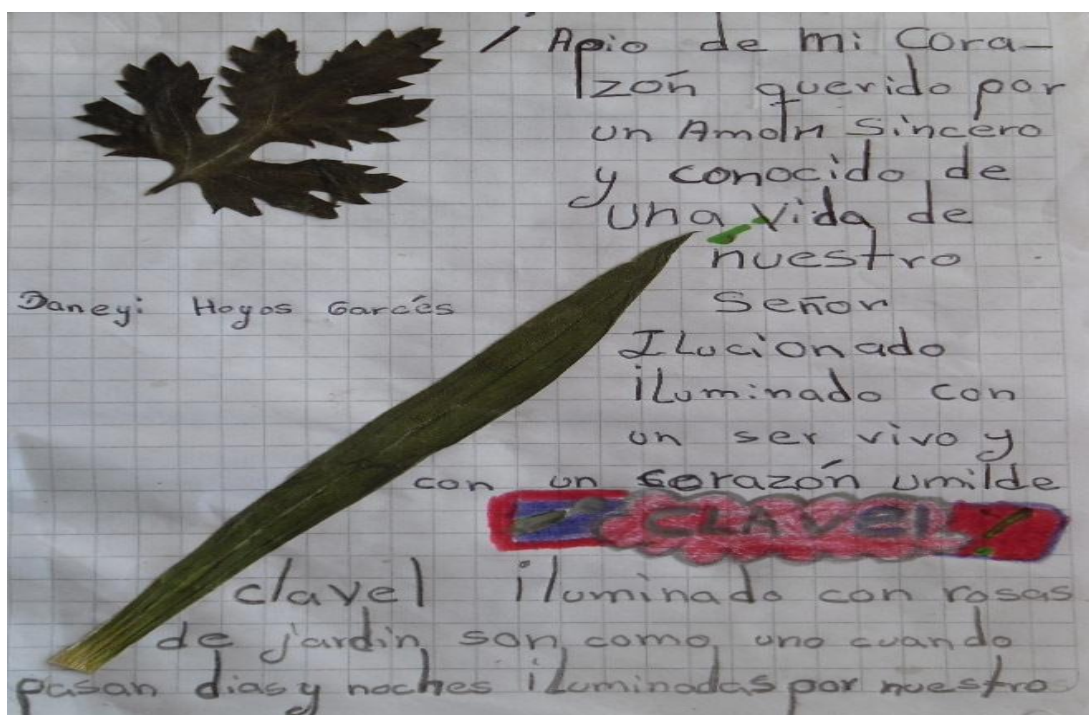 / Apio de mi Cora-
zoń querido por
un Amor Sincero
y conocido de
una vida de
nuestro
Señor
Daneyi Hoyos Garcés
ILucionado
iLuminado con
un ser vivo y
con un corazoń umilde
CLAVEL
clavel iluminado con rosas
de jardin, son como uno cuando
pasan dias y noches iluminadas por nuestro